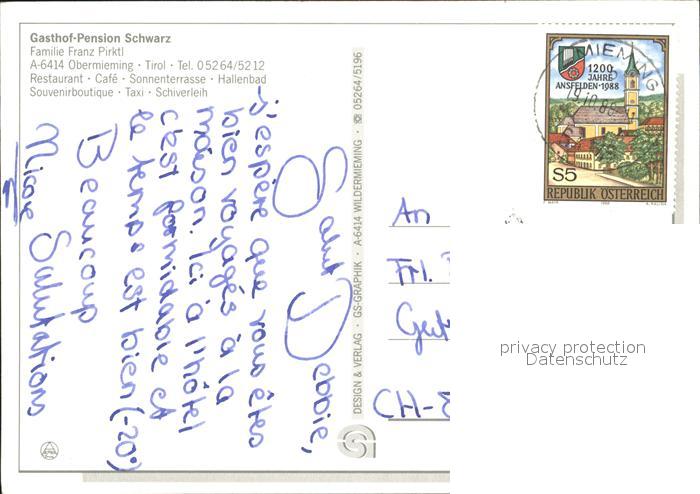 Gasthof-Pension Schwarz
Familie Franz Pirktl
A-6414 Obermieming · Tirol · Tel. 05264/5212
Restaurant · Café · Sonnenterrasse · Hallenbad
Souvenirboutique · Taxi · Schiverleih
Salut Debbie,
-j'espère que vous êtes
bien voyagés à la
maison. Ici à l'hôtel
c'est formidable et
le temps est bien (-20°)
Beaucoup
Salutations
DESIGN & VERLAG · GS-GRAPHIK · A-6414 WILDERMIEMING · ☎ 05264/5196
MIEMING
1200
JAHRE
ANSFELDEN·1988
S5
REPUBLIK ÖSTERREICH
An
Frl.
CH-
privacy protection
Datenschutz